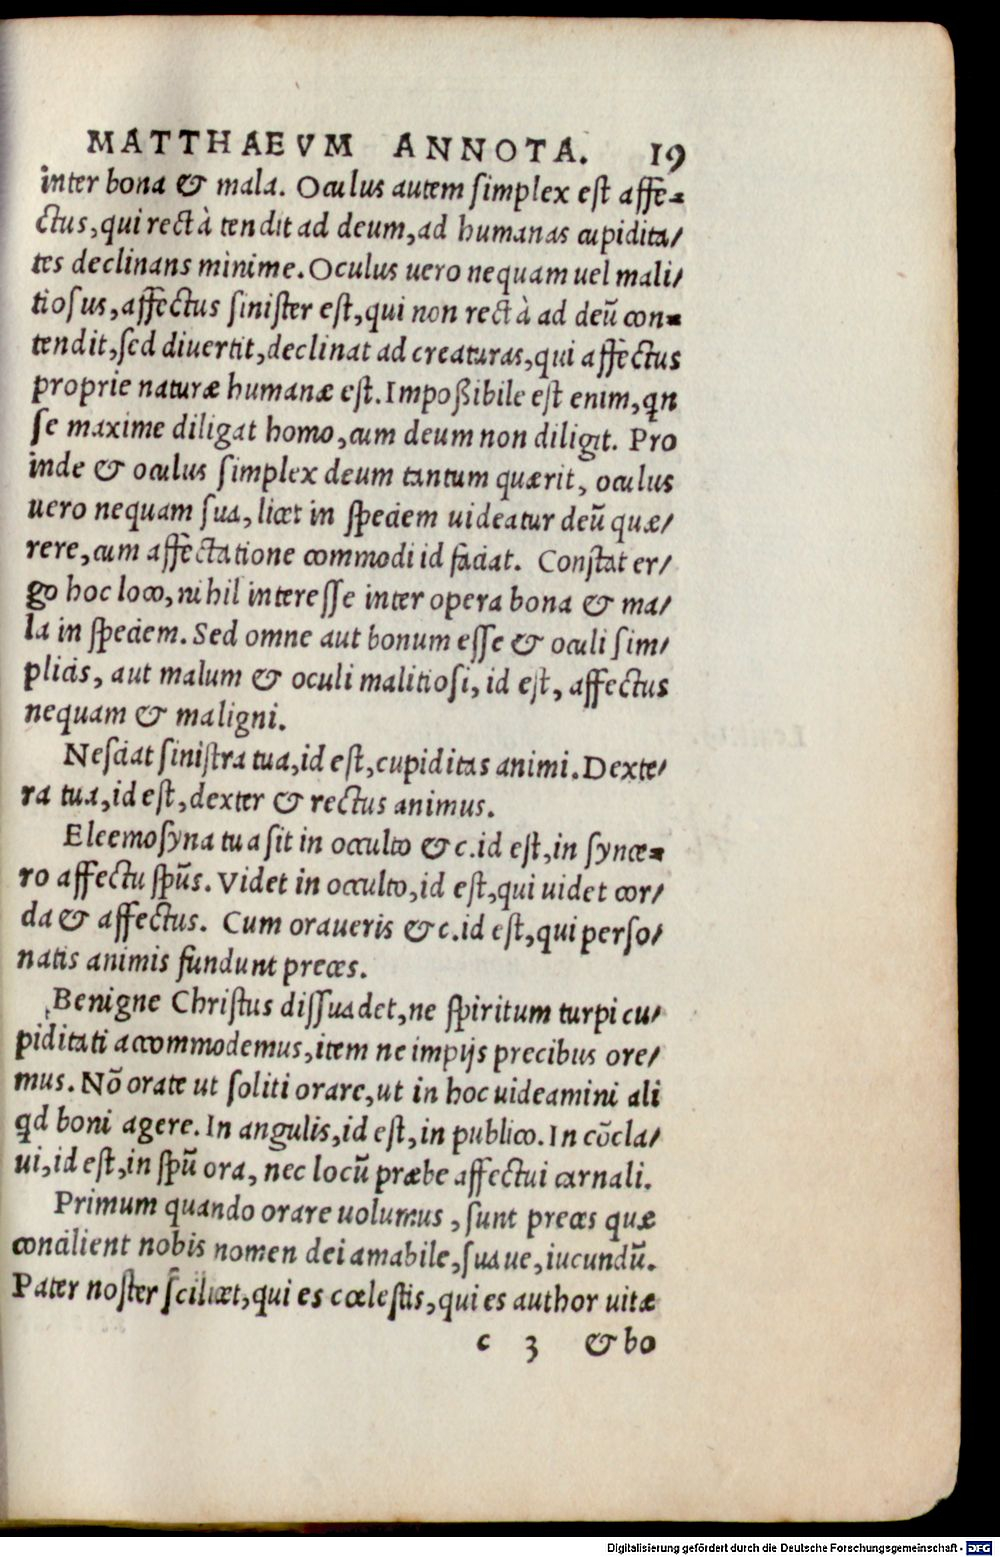 MATTHAEVM ANNOTA. 19
inter bona & mala. Oculus autem ſimplex eſt affe-
ctus, qui rectà tendit ad deum, ad humanas cupidita/
tes declinans minime. Oculus uero nequam uel mali/
tioſus, affectus ſiniſter eſt, qui non rectà ad deũ con-
tendit, ſed diuertit, declinat ad creaturas, qui affectus
proprie naturæ humanæ eſt. Impoßibile eſt enim, qn
ſe maxime diligat homo, cum deum non diligit. Pro
inde & oculus ſimplex deum tantum quærit, oculus
uero nequam ſua, licet in ſpeciem uideatur deũ quæ/
rere, cum affectatione commodi id faciat. Conſtat er/
go hoc loco, nihil intereſſe inter opera bona & ma/
la in ſpeciem. Sed omne aut bonum eſſe & oculi ſim/
plicis, aut malum & oculi malitioſi, id eſt, affectus
nequam & maligni.
Neſciat ſiniſtra tua, id eſt, cupiditas animi. Dexte/
ra tua, id eſt, dexter & rectus animus.
Eleemoſyna tua ſit in occulto & c. id eſt, in ſynce-
ro affectu ſpũs. Videt in occulto, id eſt, qui uidet cor/
da & affectus. Cum oraueris & c. id eſt, qui perſo/
natis animis fundunt preces.
Benigne Chriſtus diſſuadet, ne ſpiritum turpi cu/
piditati accommodemus, item ne impijs precibus ore/
mus. Nõ orate ut ſoliti orare, ut in hoc uideamini ali
qd boni agere. In angulis, id eſt, in publico. In cõcla/
ui, id eſt, in ſpũ ora, nec locũ præbe affectui carnali.
Primum quando orare uolumus, ſunt preces quæ
concilient nobis nomen dei amabile, ſuaue, iucundũ.
Pater noſter ſcilicet, qui es cœleſtis, qui es author uitæ
c 3 & bo
Digitalisierung gefördert durch die Deutsche Forschungsgemeinschaft - DFG